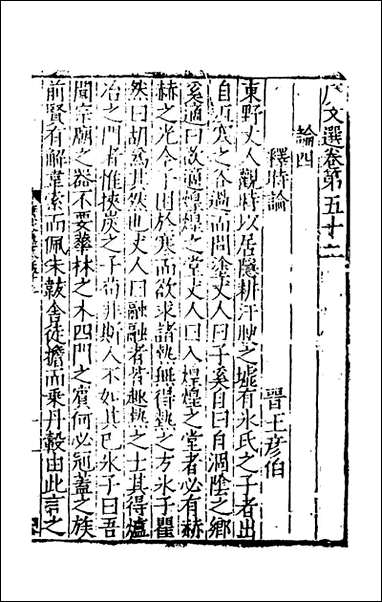 廣文選卷第五十二
論四
釋時論
晉王彦伯
東野丈人觀時以居隱耕汙腴之墟有氷氏之子者出
自沍寒之谷過而問塗丈人曰子奚自曰自涸陰之鄉
奚適曰欲適煌煌之堂丈人曰入煌煌之堂者必有赫
赫之光今子困於寒而欲求諸熱無得熱之方氷子瞿
然曰胡爲其然也丈人曰融融者皆趣熱之士其得爐
冶之門者惟挾炭之子苟非斯人不如其已氷子曰吾
聞宗廟之器不要華林之木四門之賔何必冠蓋之族
前賢有解韋索而佩朱韍舍徒擔而乘丹轂由此言之